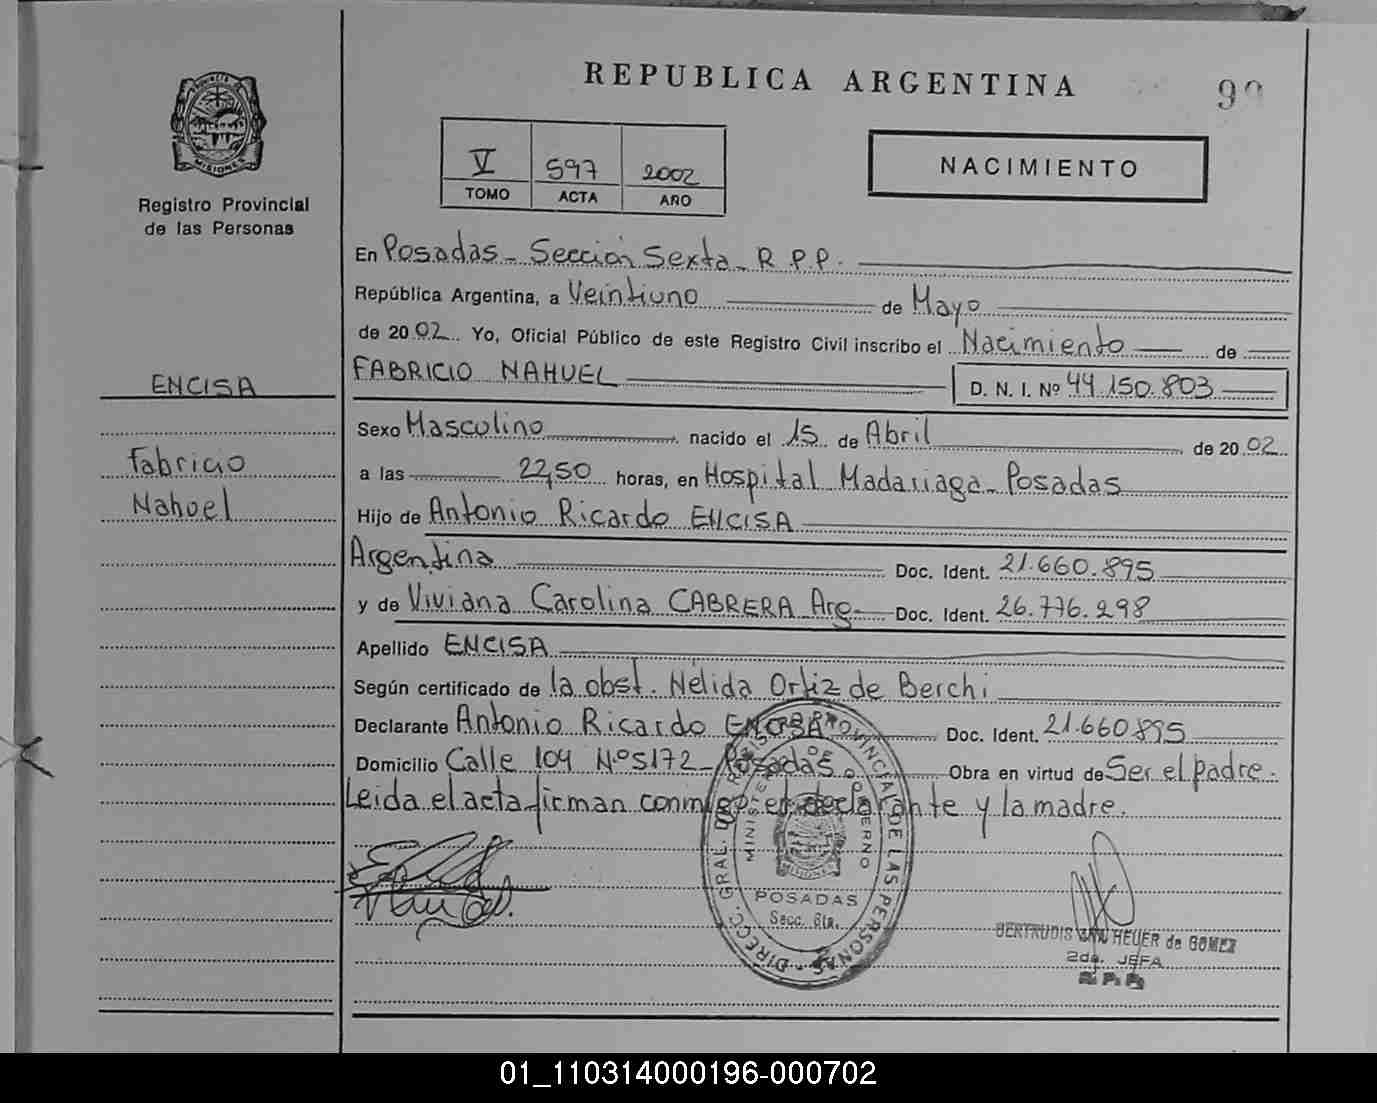 REPUBLICA ARGENTINA
MISIONES
Registro Provincial
de las Personas
V 597 2002
TOMO ACTA AÑO
NACIMIENTO
En Posadas - Sección Sexta - R.P.P.
República Argentina, a Veintiuno de Mayo
de 2002. Yo, Oficial Público de este Registro Civil inscribo el Nacimiento de
FABRICIO NAHUEL D. N. I. Nº 44.150.803
ENCISA
Fabricio
Nahuel
Sexo Masculino nacido el 15 de Abril de 2002
a las 22,50 horas, en Hospital Madariaga - Posadas
Hijo de Antonio Ricardo ENCISA
Argentina Doc. Ident. 21.660.895
y de Viviana Carolina CABRERA Arg. Doc. Ident. 26.776.298
Apellido ENCISA
Según certificado de la obst. Nélida Ortiz de Berchi
Declarante Antonio Ricardo ENCISA Doc. Ident. 21.660.895
Domicilio Calle 104 Nº 5172 - Posadas. Obra en virtud de Ser el padre.
Leida el acta firman conmigo el declarante y la madre.
DIRECC. GRAL. DEL REGISTRO PROVINCIAL DE LAS PERSONAS
MINISTERIO DE GOBIERNO
MISIONES
POSADAS
Secc. 6ta.
GERTRUDIS HEUER de GOMEZ
2da. JEFA
01_110314000196-000702